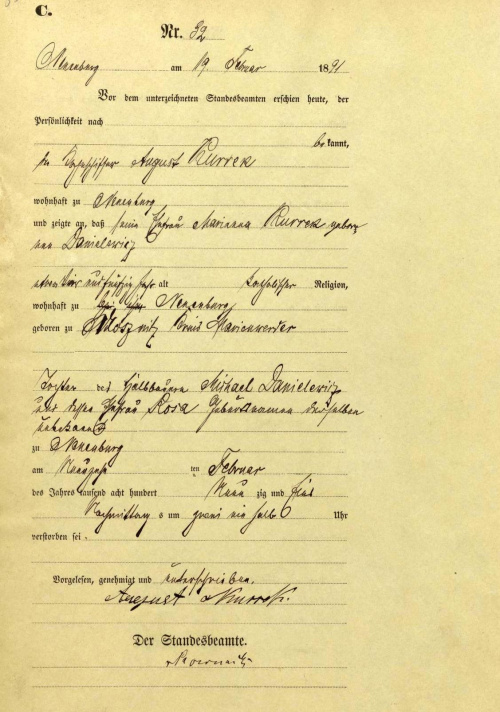 C.
Nr. 32
Neuenburg am 19 Februar 1891
Vor dem unterzeichneten Standesbeamten erschien heute, der
Persönlichkeit nach
bekannt,
der August Kurrek
wohnhaft zu Neuenburg
und zeigte an, daß seine Ehefrau Marianna Kurrek gebore
nen Danielewicz
alt katholischer Religion,
wohnhaft zu Neuenburg
geboren zu Kreis Marienwerder
Tochter des Halbbauern Michael Danielewicz
und dessen Ehefrau Rosa Geburtsnamen derselben
unbekannt
zu Neuenburg
am ten Februar
des Jahres tausend acht hundert Neun zig und Eins
Nachmittags um zwei ein halb Uhr
verstorben sei.
Vorgelesen, genehmigt und unterschrieben.
August Kurrek.
Der Standesbeamte.